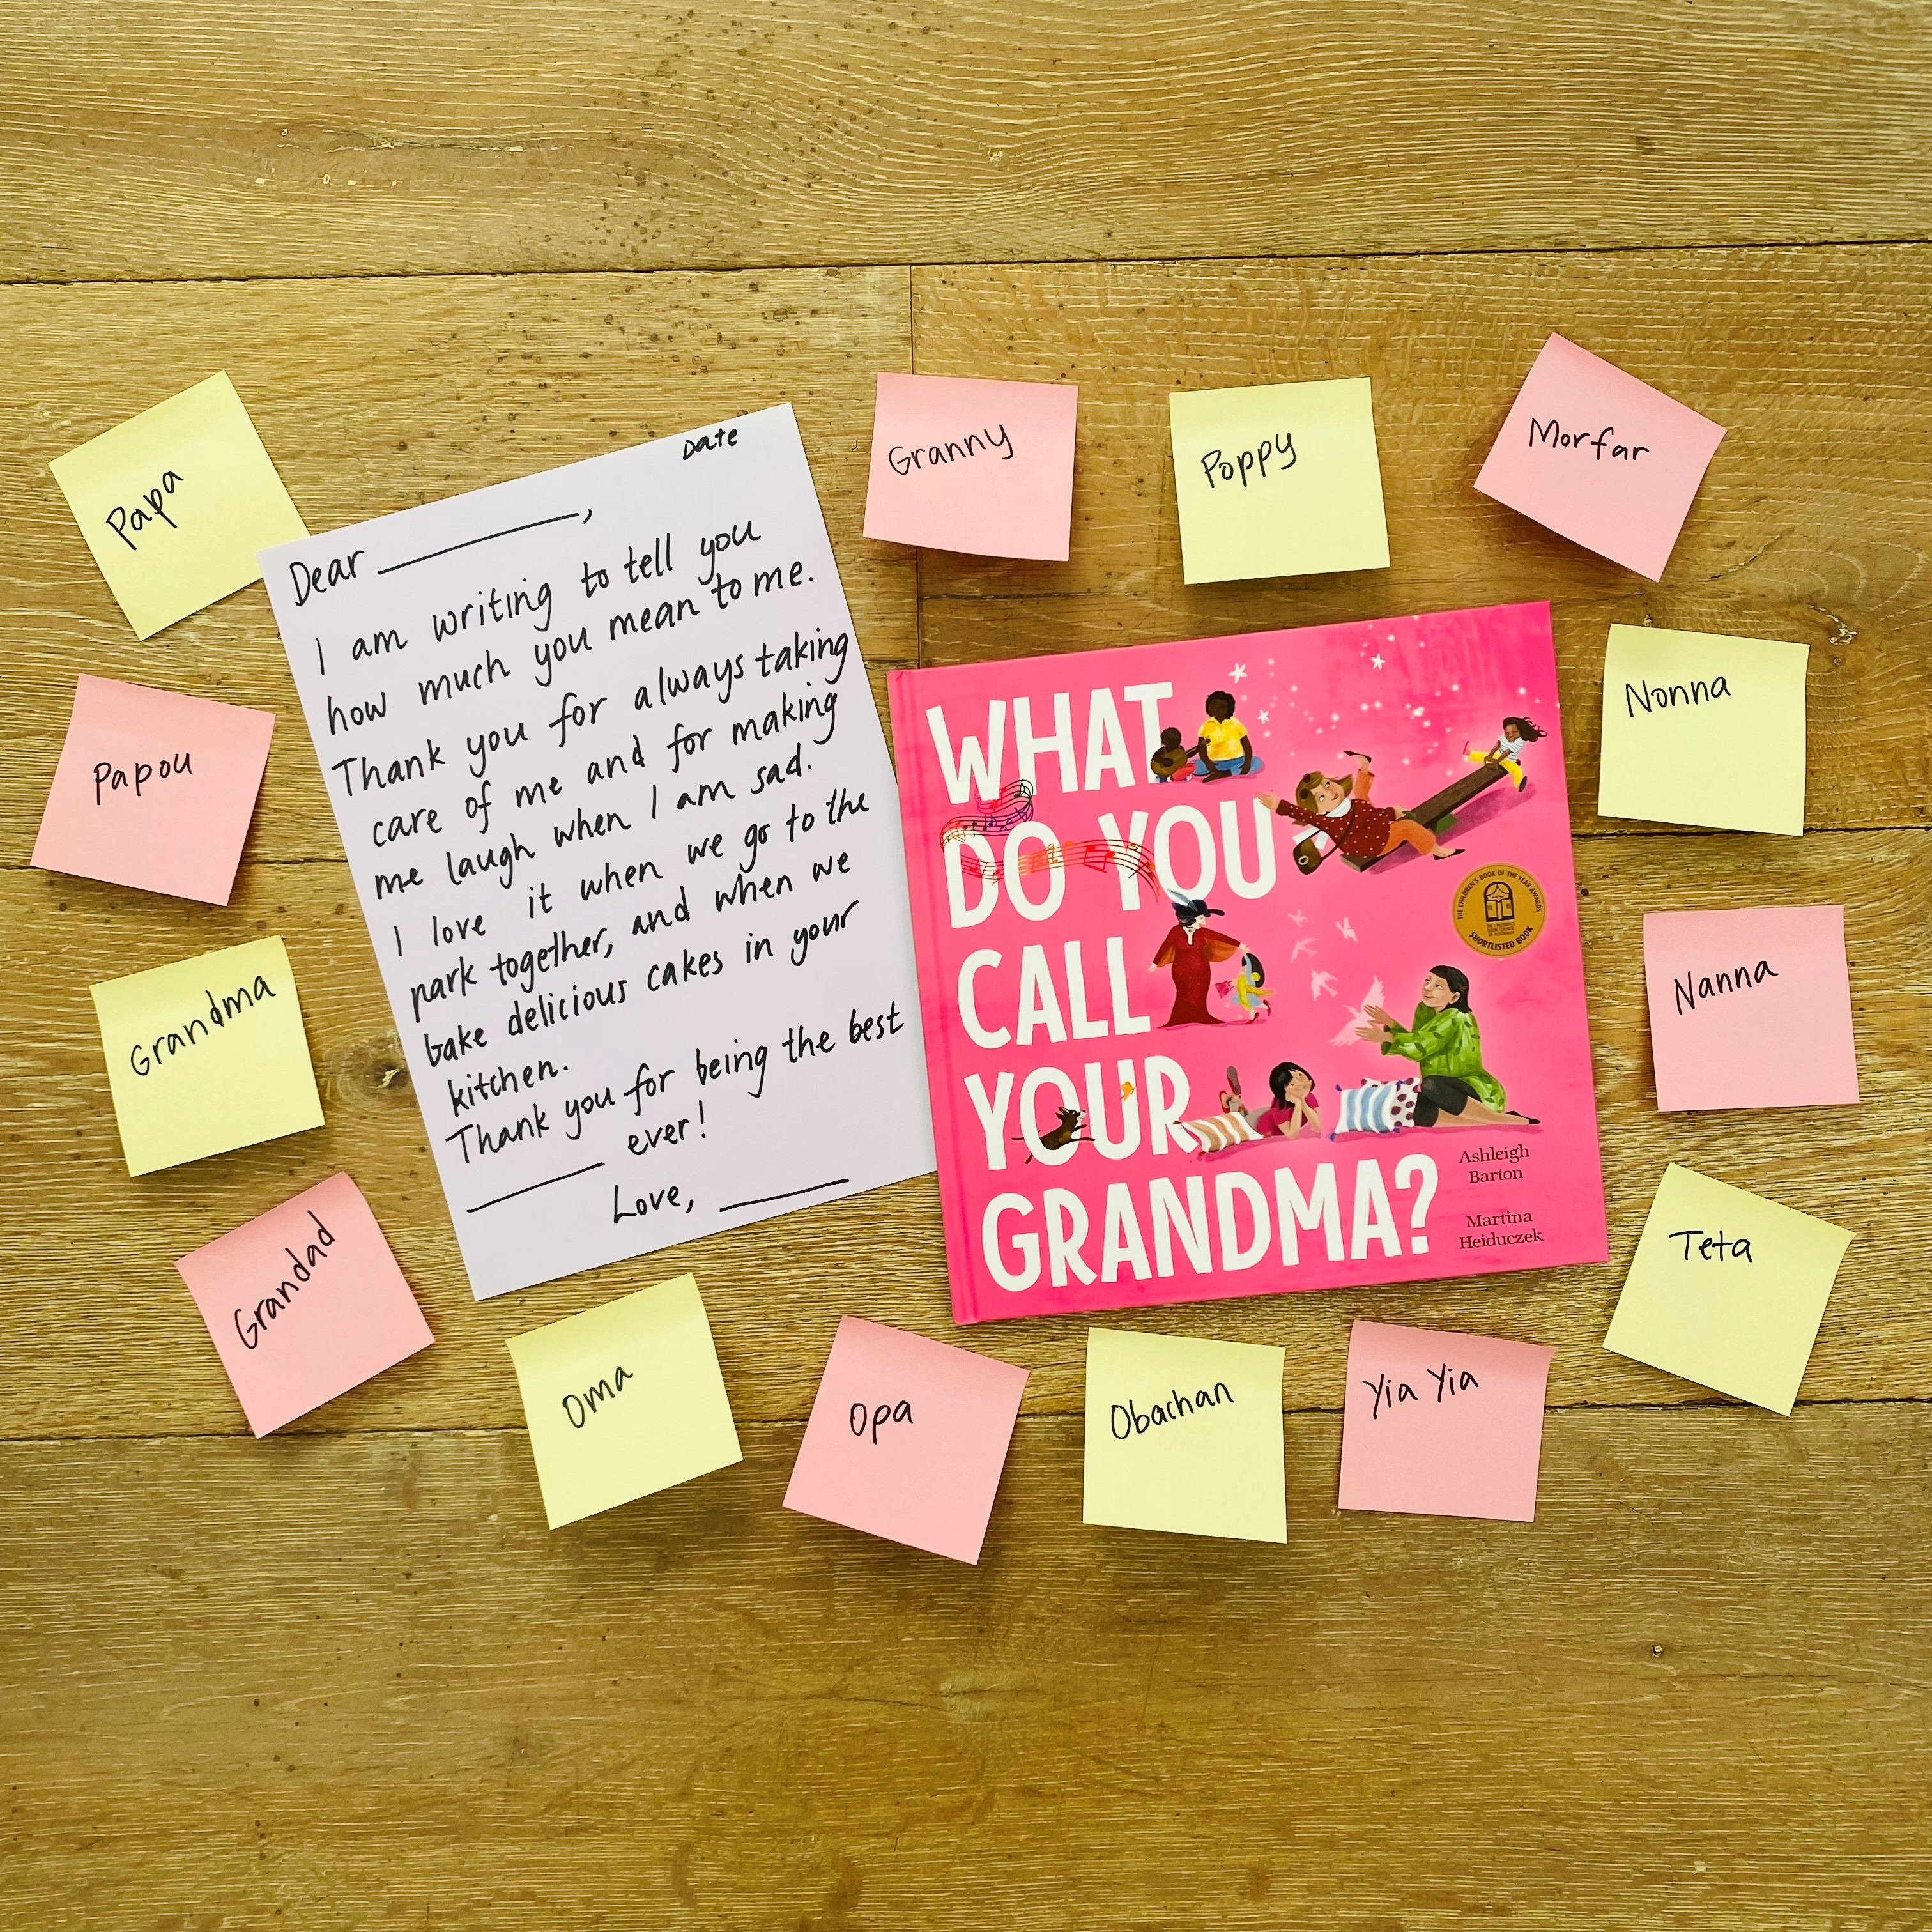 Papa
Papou
Grandma
Grandad
Oma
Opa
Obachan
Yia Yia
Teta
Nanna
Nonna
Morfar
Poppy
Granny
Date
Dear __________,
I am writing to tell you
how much you mean to me.
Thank you for always taking
care of me and for making
me laugh when I am sad.
I love it when we go to the
park together, and when we
bake delicious cakes in your
kitchen.
Thank you for being the best
__________ ever!
Love, __________
WHAT
DO YOU
CALL
YOUR
GRANDMA?
Ashleigh
Barton
Martina
Heiduczek
THE CHILDREN'S BOOK OF THE YEAR AWARDS
SHORTLISTED BOOK